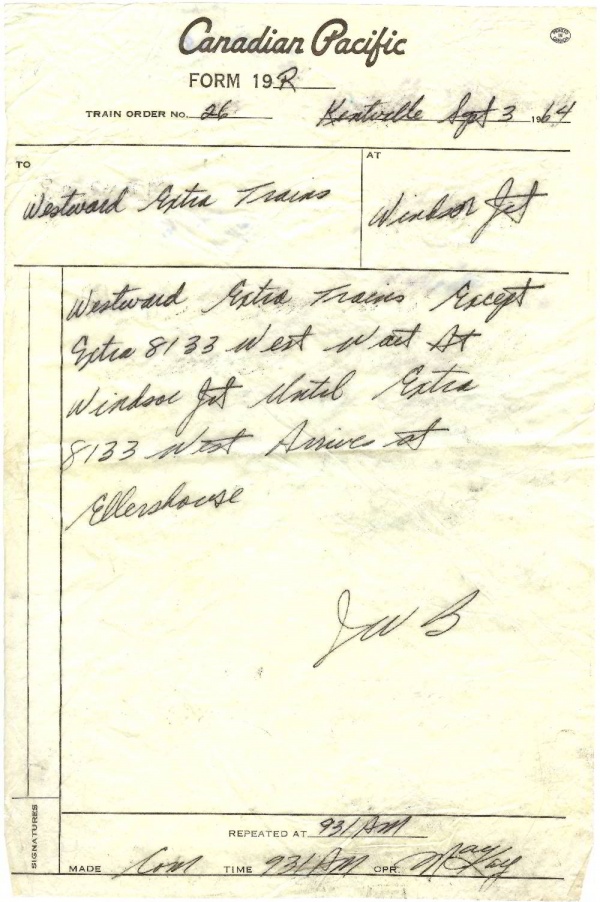 Canadian Pacific
FORM 19 R
TRAIN ORDER No. 26 Kentville Sept 3 1964
TO
AT
Westward Extra Trains
Windsor Jct
Westward Extra Trains Except
Extra 8133 West Wait At
Windsor Jct Until Extra
8133 West Arrives at
Ellershouse
JW B
SIGNATURES
REPEATED AT 931 AM
MADE Com TIME 931 AM OPR. MacKay